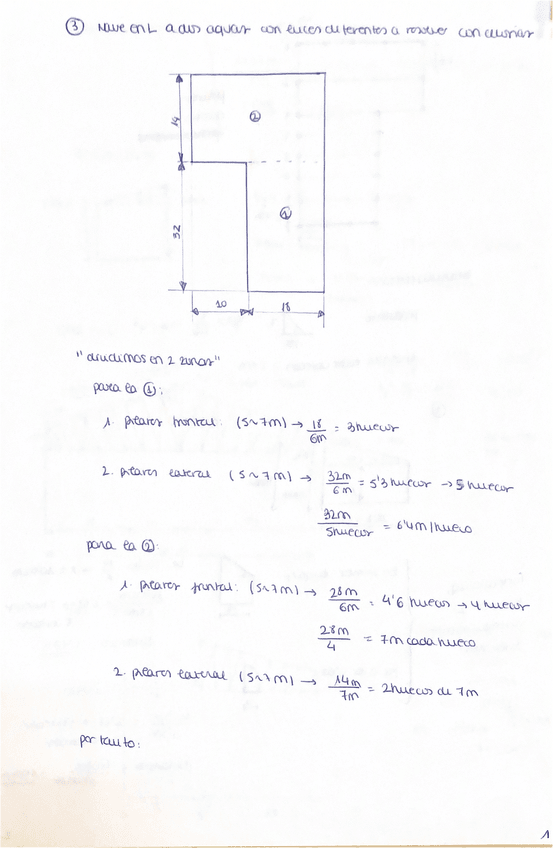 ③ Nave en L a dos aguas con luces diferentes a resolver con cerchas
14
②
32
①
10
18
"dividimos en 2 zonas"
para la ①:
1. pilares frontal: (5~7m) → 18/6m = 3 huecos
2. pilares lateral (5~7m) → 32m/6m = 5'3 huecos → 5 huecos
32m/5huecos = 6'4m/hueco
para la ②:
1. pilares frontal: (5~7m) → 28m/6m = 4'6 huecos → 4 huecos
28m/4 = 7m cada hueco
2. pilares lateral (5~7m) → 14m/7m = 2 huecos de 7m
por tanto:
1